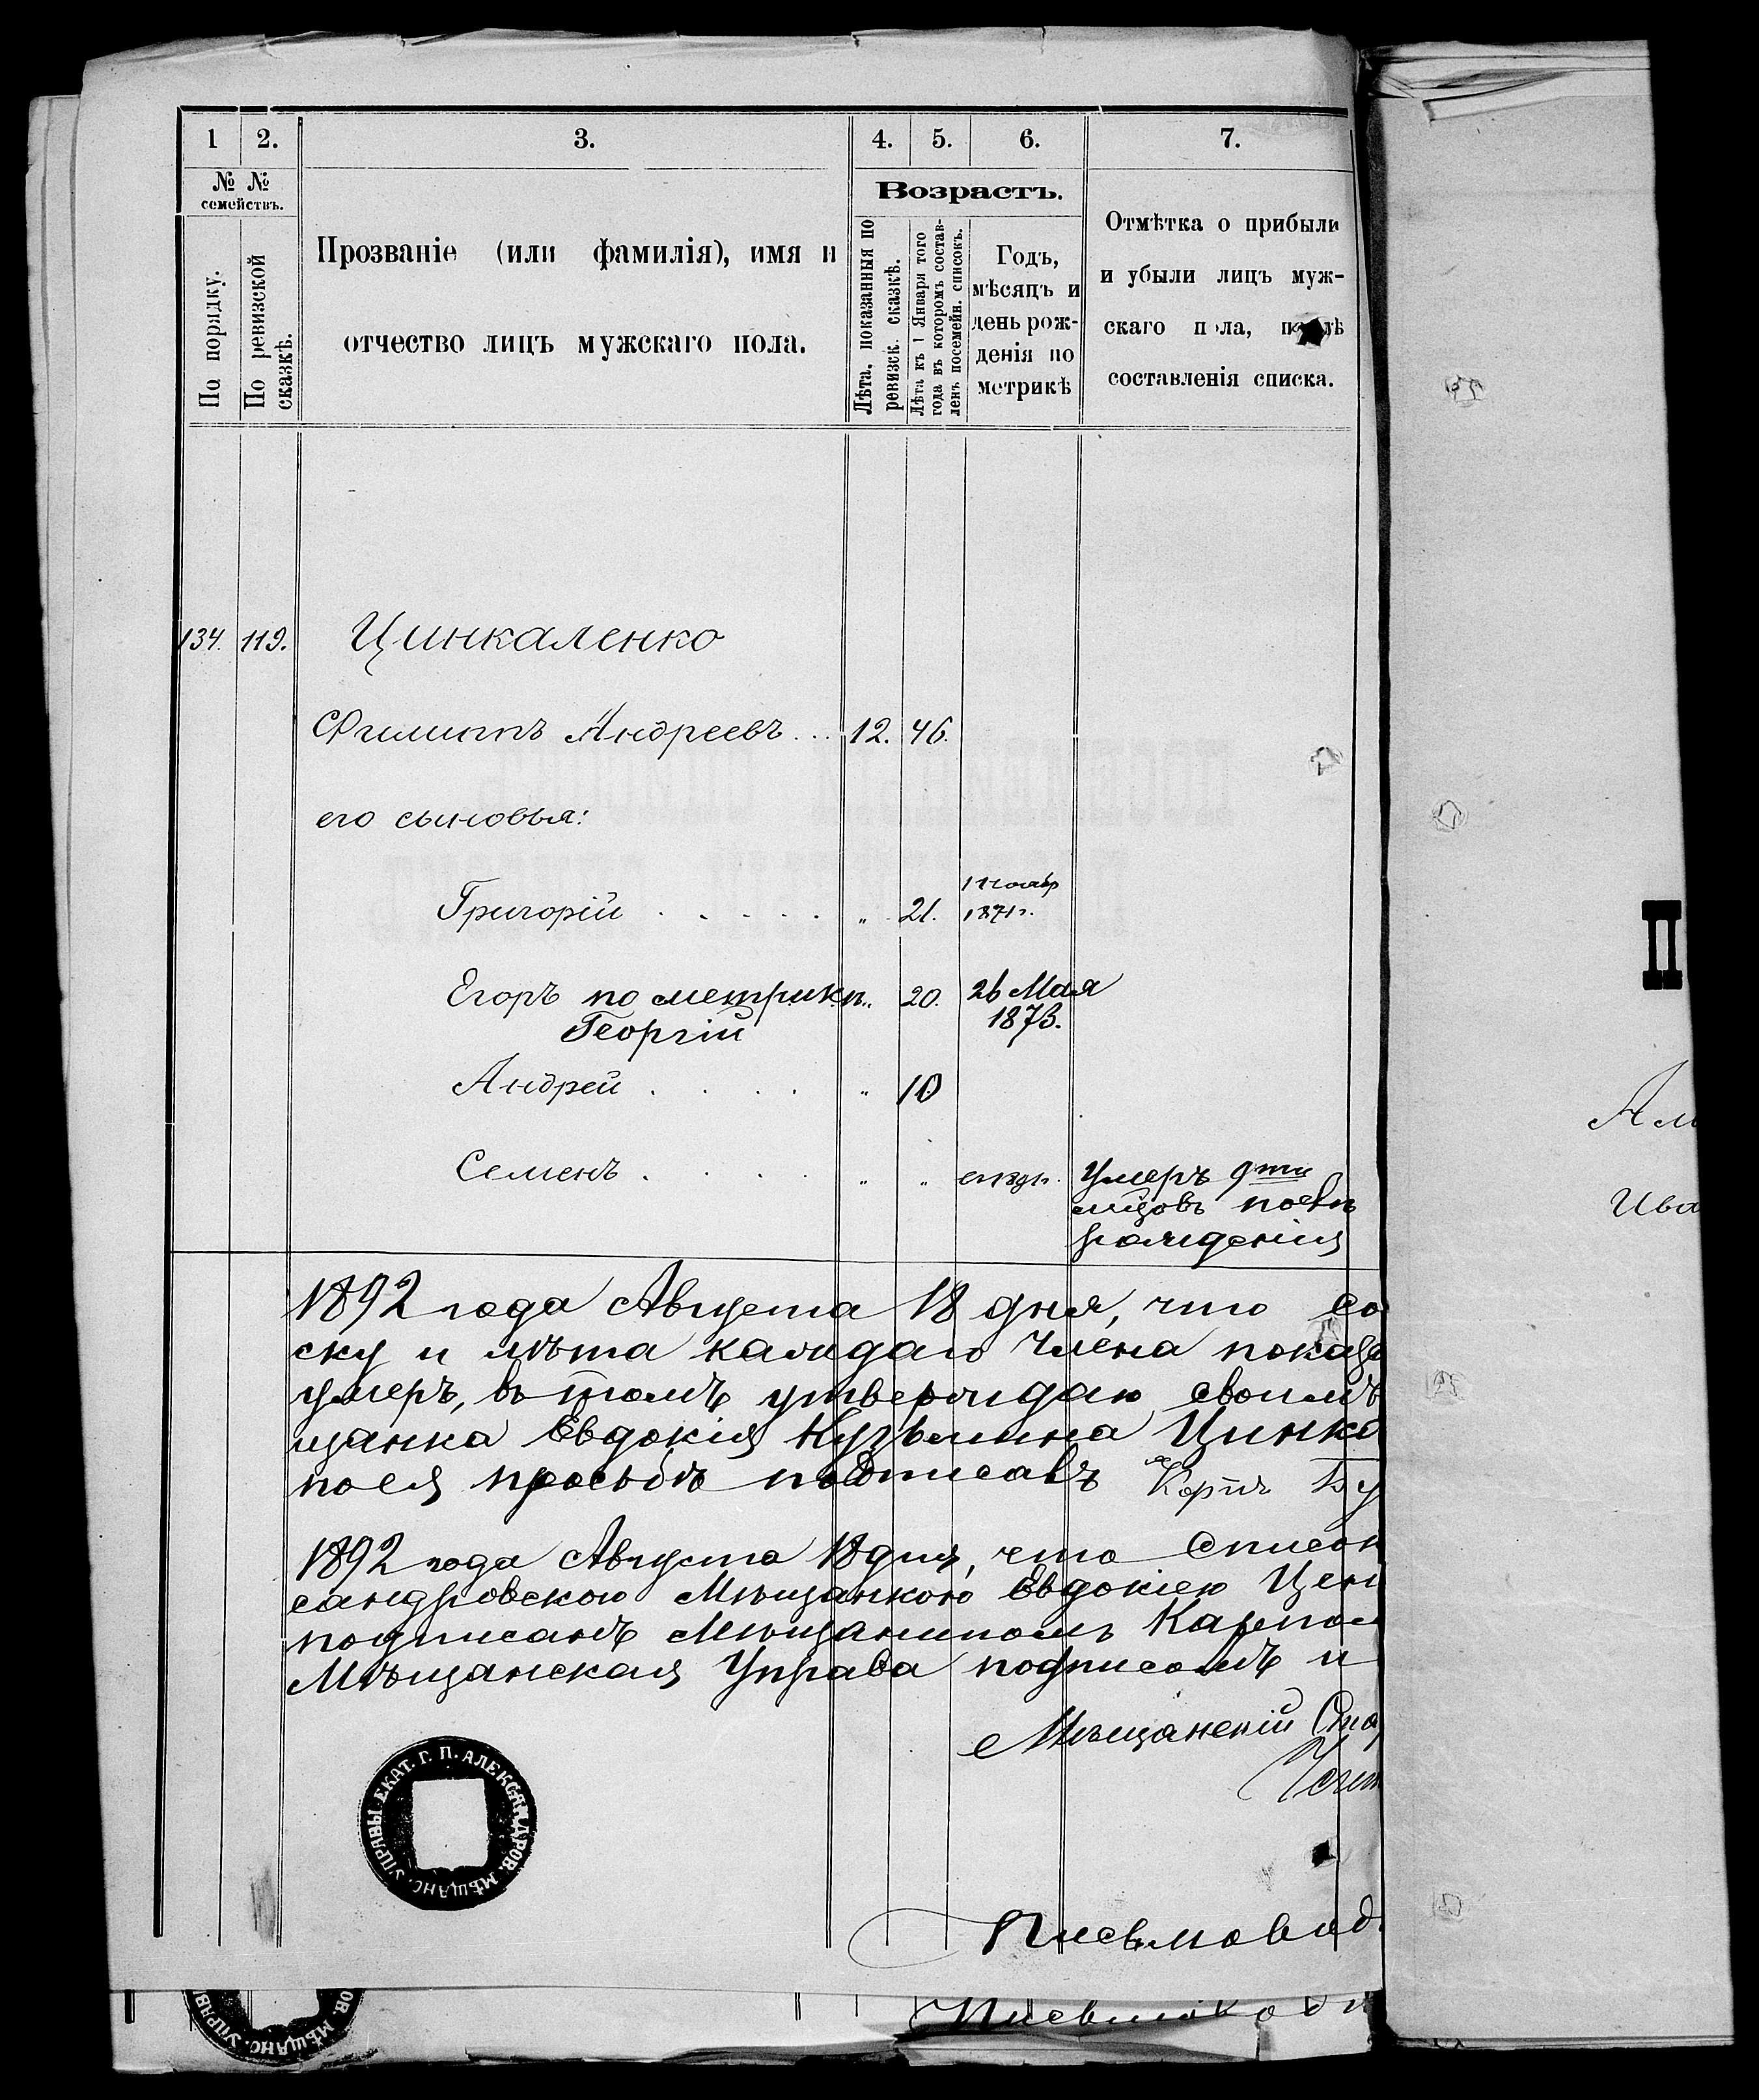 1 2. 3. 4. 5. 6. 7.
№ № семействъ.
По порядку.
По ревизской сказкѣ.
Прозваніе (или фамилія), имя и
отчество лицъ мужскаго пола.
Возрастъ.
Лѣта, показанныя по
ревизск. сказкѣ.
Лѣта къ 1 Января того
года въ которомъ состав-
ленъ посемейн. списокъ.
Годъ,
мѣсяцъ и
день рож-
денія по
метрикѣ
Отмѣтка о прибыли
и убыли лицъ муж-
скаго пола, послѣ
составленія списка.
134. 119. Цинкаленко
Филиппъ Андреевъ . . . 12. 46.
его сыновья:
1 Ноябр
Григорій . . . . . „ 21. 1871 г.
Егоръ по метрикѣ „ 20. 26 Мая
Георгій 1873.
Андрей . . . . „ 10
Семенъ . . . . „ „ Умеръ 9ти
мѣцовъ послѣ
рожденія
1892 года Августа 18 дня, что со
ску и лѣта каждаго члена показа
умеръ, въ томъ утверждаю своимъ
щанка Евдокія Кузьмина Цинка
по ея просьбѣ подписавъ Карпъ Бу
1892 года Августа 18 дня, что Список
сандровскою Мѣщанкою Евдокіею Цен
подписанъ Мѣщаниномъ Карпом
Мѣщанская Управа подписомъ и
Мѣщанскій Ста
ЕКАТ. Г. П. АЛЕКСАНДРОВ. МѢЩАНС. УПРАВЫ
Письмовод
ОВ. МѢЩАНС. УПРАВ
Письмовод
П
Ал
Ива